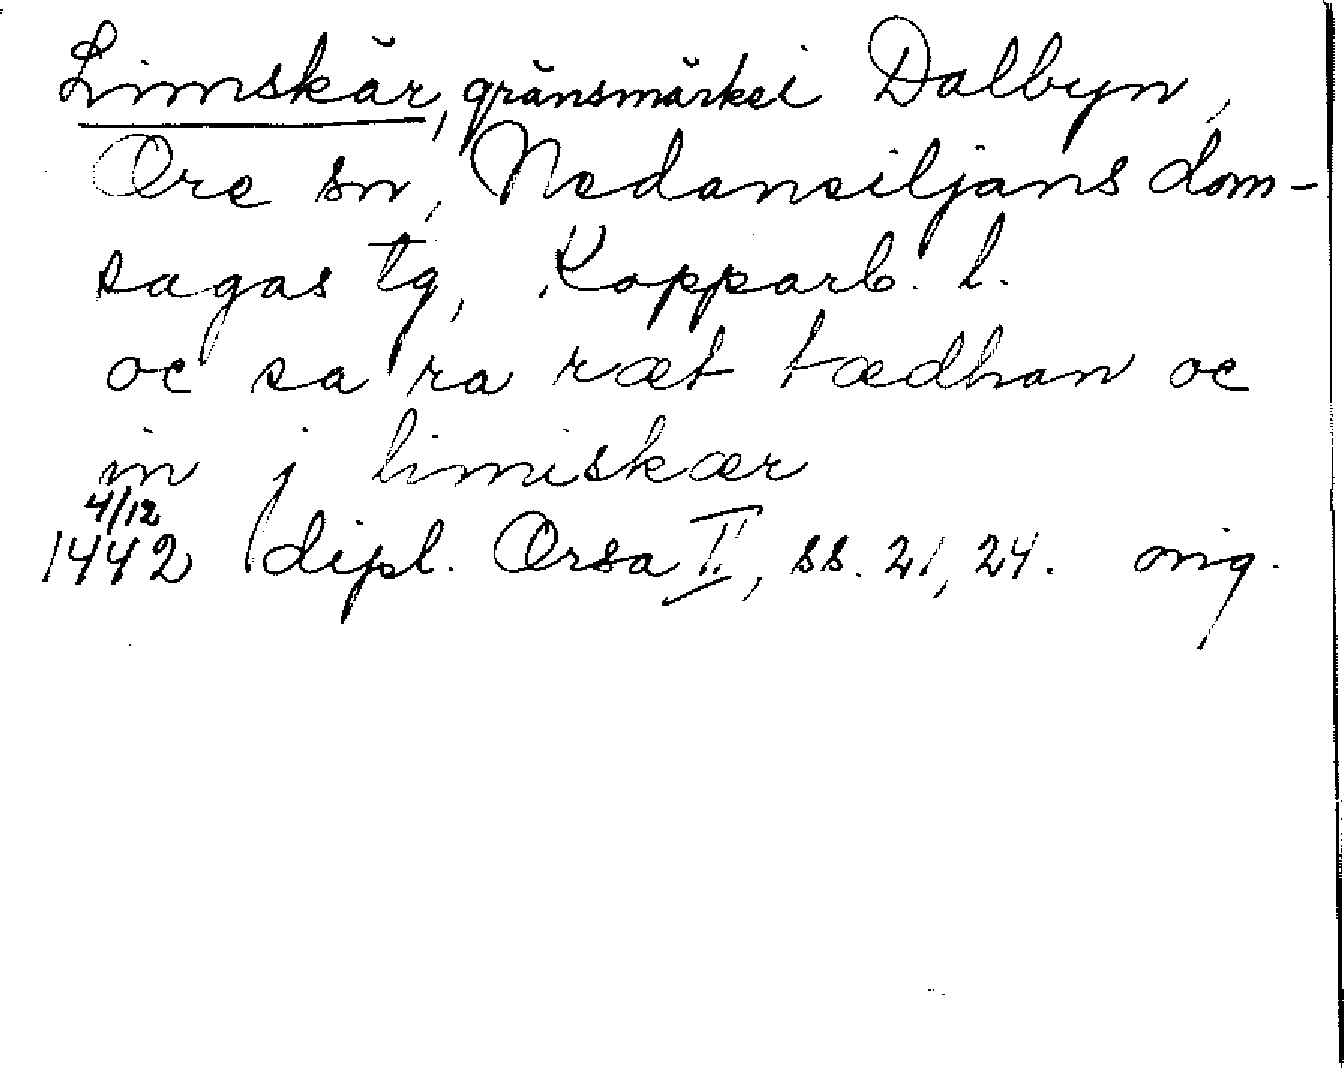 Limskär, gränsmärke i Dalbyn,
Ore sn, Nedansiljans dom-
sagas tg, Kopparb. l.
oc sa ra ræt tædhan oc
in j limiskær
4/12
1442 dipl. Orsa II, ss. 21, 24. orig.